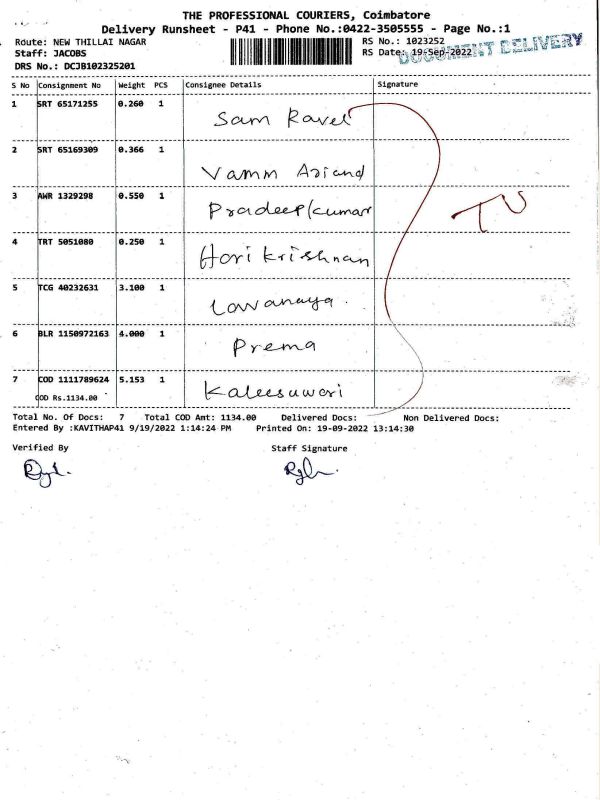 THE PROFESSIONAL COURIERS, Coimbatore
Delivery Runsheet - P41 - Phone No.:0422-3505555 - Page No.:1
Route: NEW THILLAI NAGAR RS No.: 1023252
Staff: JACOBS RS Date: 19-Sep-2022
DOCUMENT DELIVERY
DRS No.: DCJB102325201
S No Consignment No Weight PCS Consignee Details Signature
1 SRT 65171255 0.260 1 Sam Ravel
2 SRT 65169309 0.366 1 Vamm Aziand
3 AWR 1329298 0.550 1 Pradeep kumar
TV
4 TRT 5051080 0.250 1 Hari krishnan
5 TCG 40232631 3.100 1 Lavanaya.
6 BLR 1150972163 4.000 1 Prema
7 COD 1111789624 5.153 1 Kaleesuwari
COD Rs.1134.00
Total No. Of Docs: 7 Total COD Amt: 1134.00 Delivered Docs: Non Delivered Docs:
Entered By :KAVITHAP41 9/19/2022 1:14:24 PM Printed On: 19-09-2022 13:14:30
Verified By Staff Signature